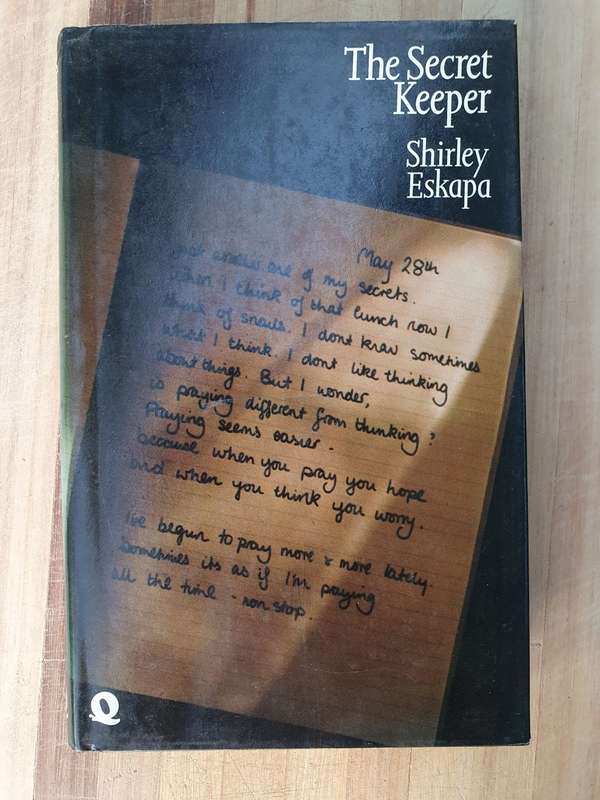 The Secret
Keeper
Shirley
Eskapa
May 28th
not another one of my secrets.
when I think of that lunch now I
think of snails. I dont know sometimes
what I think. I dont like thinking
about things. But I wonder,
is praying different from thinking?
Praying seems easier.
because when you pray you hope
and when you think you worry.
I've begun to pray more & more lately.
Sometimes its as if I'm praying
all the time - non stop.
Q